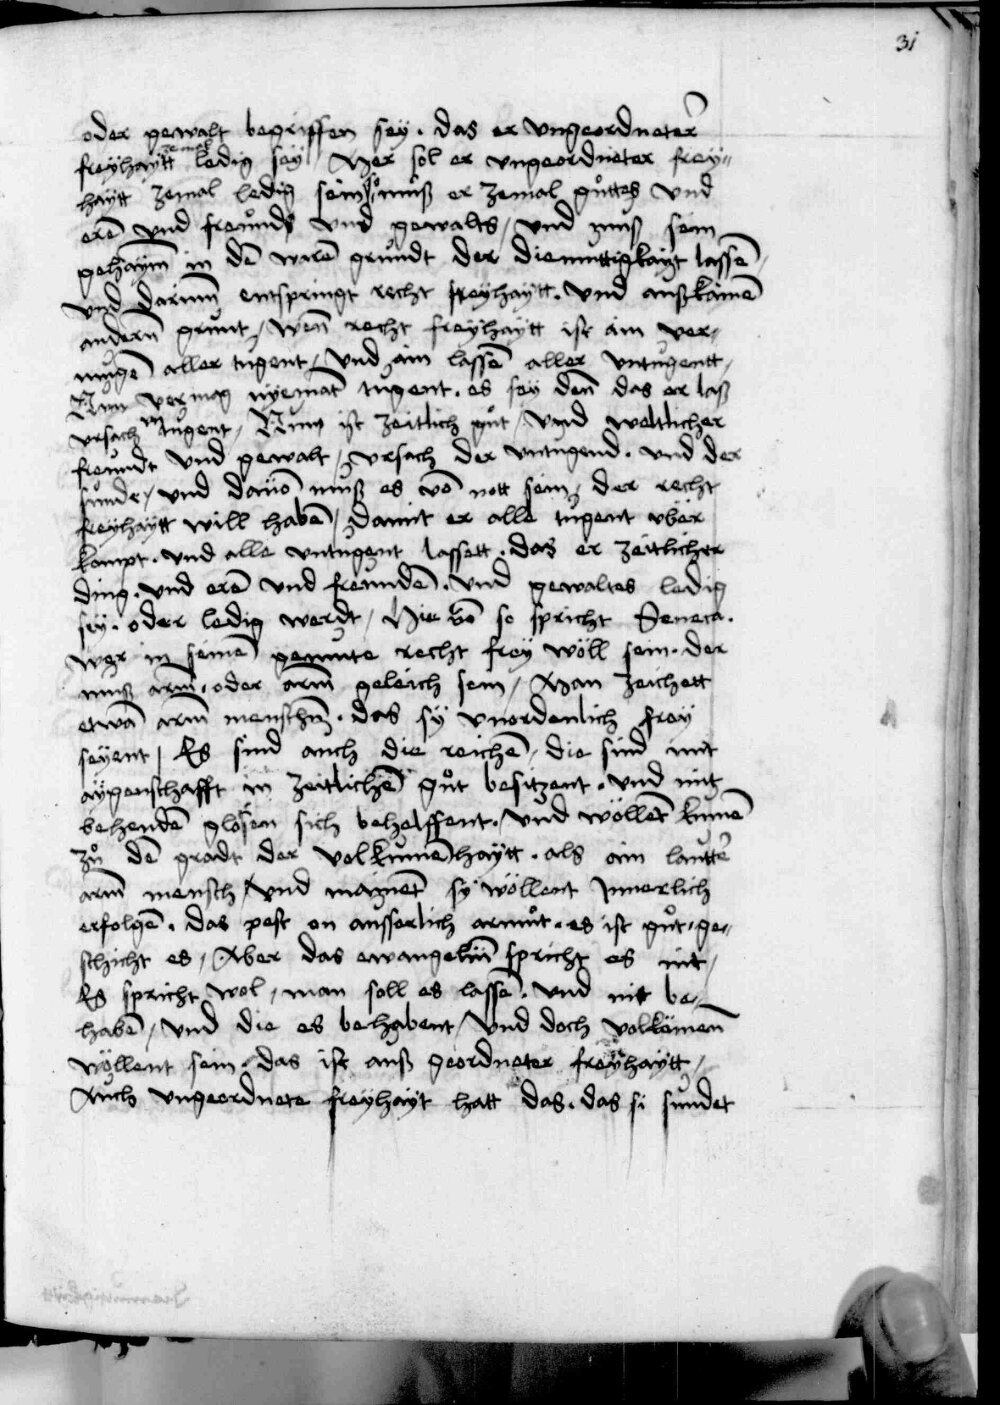 31
oder gewalt begriffen sey . das er vngeordneter
freyhaÿtt zemal ledig sey / Wer sol er vngeordneter frey„
haÿtt zemal ledig sein / so muß er zemal gůttes vnd
erē vnd freůnds vnd gewalts / vnd muß sein
gehaÿm̄ in dē warē grůndt der diemuttigkaÿt lassē /
vnd darum̄ entspringt recht freyhaÿtt . vnd auß kainē
andern̄ grunt / Wan̄ recht freyhaÿtt ist ain ver„
mugē aller tugent / vnd ain lassē aller vntugentt /
Nun vermag nÿemāt tugent . es sey den̄ das er laß
vrsach vntugent / Nun ist zeitlich gůt / vnd weltlicher
freundt vnd gewalt / vrsach der vntugend . vnd der
sunde / vnd dauō muß es vō nott sein / der recht
freyhaÿtt will habē / damit er alle tugent vber
kompt . vnd alle vntugent lassett . das er zeittlicher
ding . vnd erē vnd freundē . vnd gewaltes ledig
sey . oder ledig werdt / Hie vō so spricht Seneca .
wer in seinē gemute recht frey wöll sein . der
muß arm̄ . oder arm̄ geleich sein / Man zeichett
etwā arm̄ menschn̄ . das sÿ vnordenlich frey
seyent / Es sind auch die reichē / die sind mit
aÿgenschafft in zeitlichē gůt besitzent . vnd mit
behendē glosen sich behelffent . vnd wöllēt kumē
zů dē gradt der volkumēhaÿtt . als ain lautter
arm̄ mensch / vnd mainēt sÿ wöllent Innerlich
erfolgē . das pest on ausserlich armůt . es ist gůt . ge„
schicht es / Aber das ewangeliū spricht es nit /
Es spricht wol / man soll es lassē . vnd nit be„
habē / vnd die es behabent / vnd doch volkömen̄
wöllent sein . das ist auß geordneter freÿhaÿtt /
Auch vngeordnete freyhaÿt hatt das . das si sundet